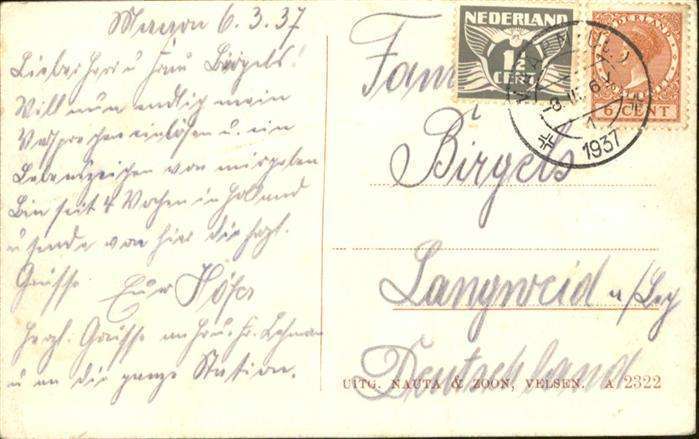 6.3.37
Lieber Herr u Frau Birgels!
Will nun endlig mein
Versprechen einlösen u. ein
Lebenszeichen von mir geben
Bin seit 4 Wochen in Holland
u sende von hier die hrzl.
Grüsse. Euer Höfer
Herzl. Grüsse an Hr. u. Fr. Lehman
u an die ganze Station.
NEDERLAND
1½
CENT
NEDERLAND
6 CENT
1937
Fam
Birgels
Langweid a/Lech
Deutschland
UITG. NAUTA & ZOON, VELSEN. A 2322